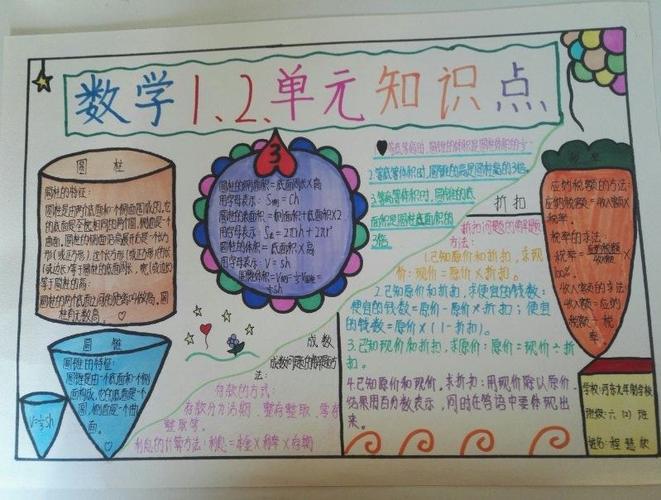 数学1.2.单元知识点
圆柱
圆柱的特征:
圆柱是由两个底面和一个侧面围成的。它
的底面是完全相同的两个圆,侧面是一个
曲面。圆柱的侧面沿高展开后是一个长方
形(或正方形),这个长方形(或正方形)的长
(或边长)等于圆柱的底面周长,宽(或边长)
等于圆柱的高。
圆柱的两个底面之间的距离叫做高。圆
柱有无数高。
3
圆柱的侧面积=底面周长×高
用字母表示:S侧=Ch
圆柱的表面积=侧面积+底面积×2
用字母表示:S表=2πrh+2πr²
圆柱的体积=底面积×高
用字母表示:V=sh
等底等高时,圆锥的体积是圆柱体积的
2.等底等体积时,圆锥的高是圆柱高的3倍。
3.等高等体积时,圆锥的底
面积是圆柱底面积的
3倍。
折扣
折扣问题的解题
方法:
1.已知原价和折扣,求现
价:现价=原价×折扣。
2.已知原价和折扣,求便宜的钱数:
便宜的钱数=原价-原价×折扣;便宜
的钱数=原价×(1-折扣)。
3.已知现价和折扣,求原价:原价=现价÷折
扣。
4.已知原价和现价,求折扣:用现价除以原价,
结果用百分数表示,同时在答语中要体现出
来。
应纳税额的方法:
应纳税额=收入额×
税率。
税率的求法:
税率=应纳税额/收入额×
100%.
收入额的求法:
收入额=应纳
税额÷税
率。
圆锥
圆锥的特征:
圆锥是由一个底面和一个侧
面构成。它的底面是一个
圆,侧面是一个曲
面。
V=⅓sh
成数
法:
存款的方式:
存款分为活期、整存整取、零存
整取等。
利息的计算方法:利息=本金×利率×存期
班级:六(1)班